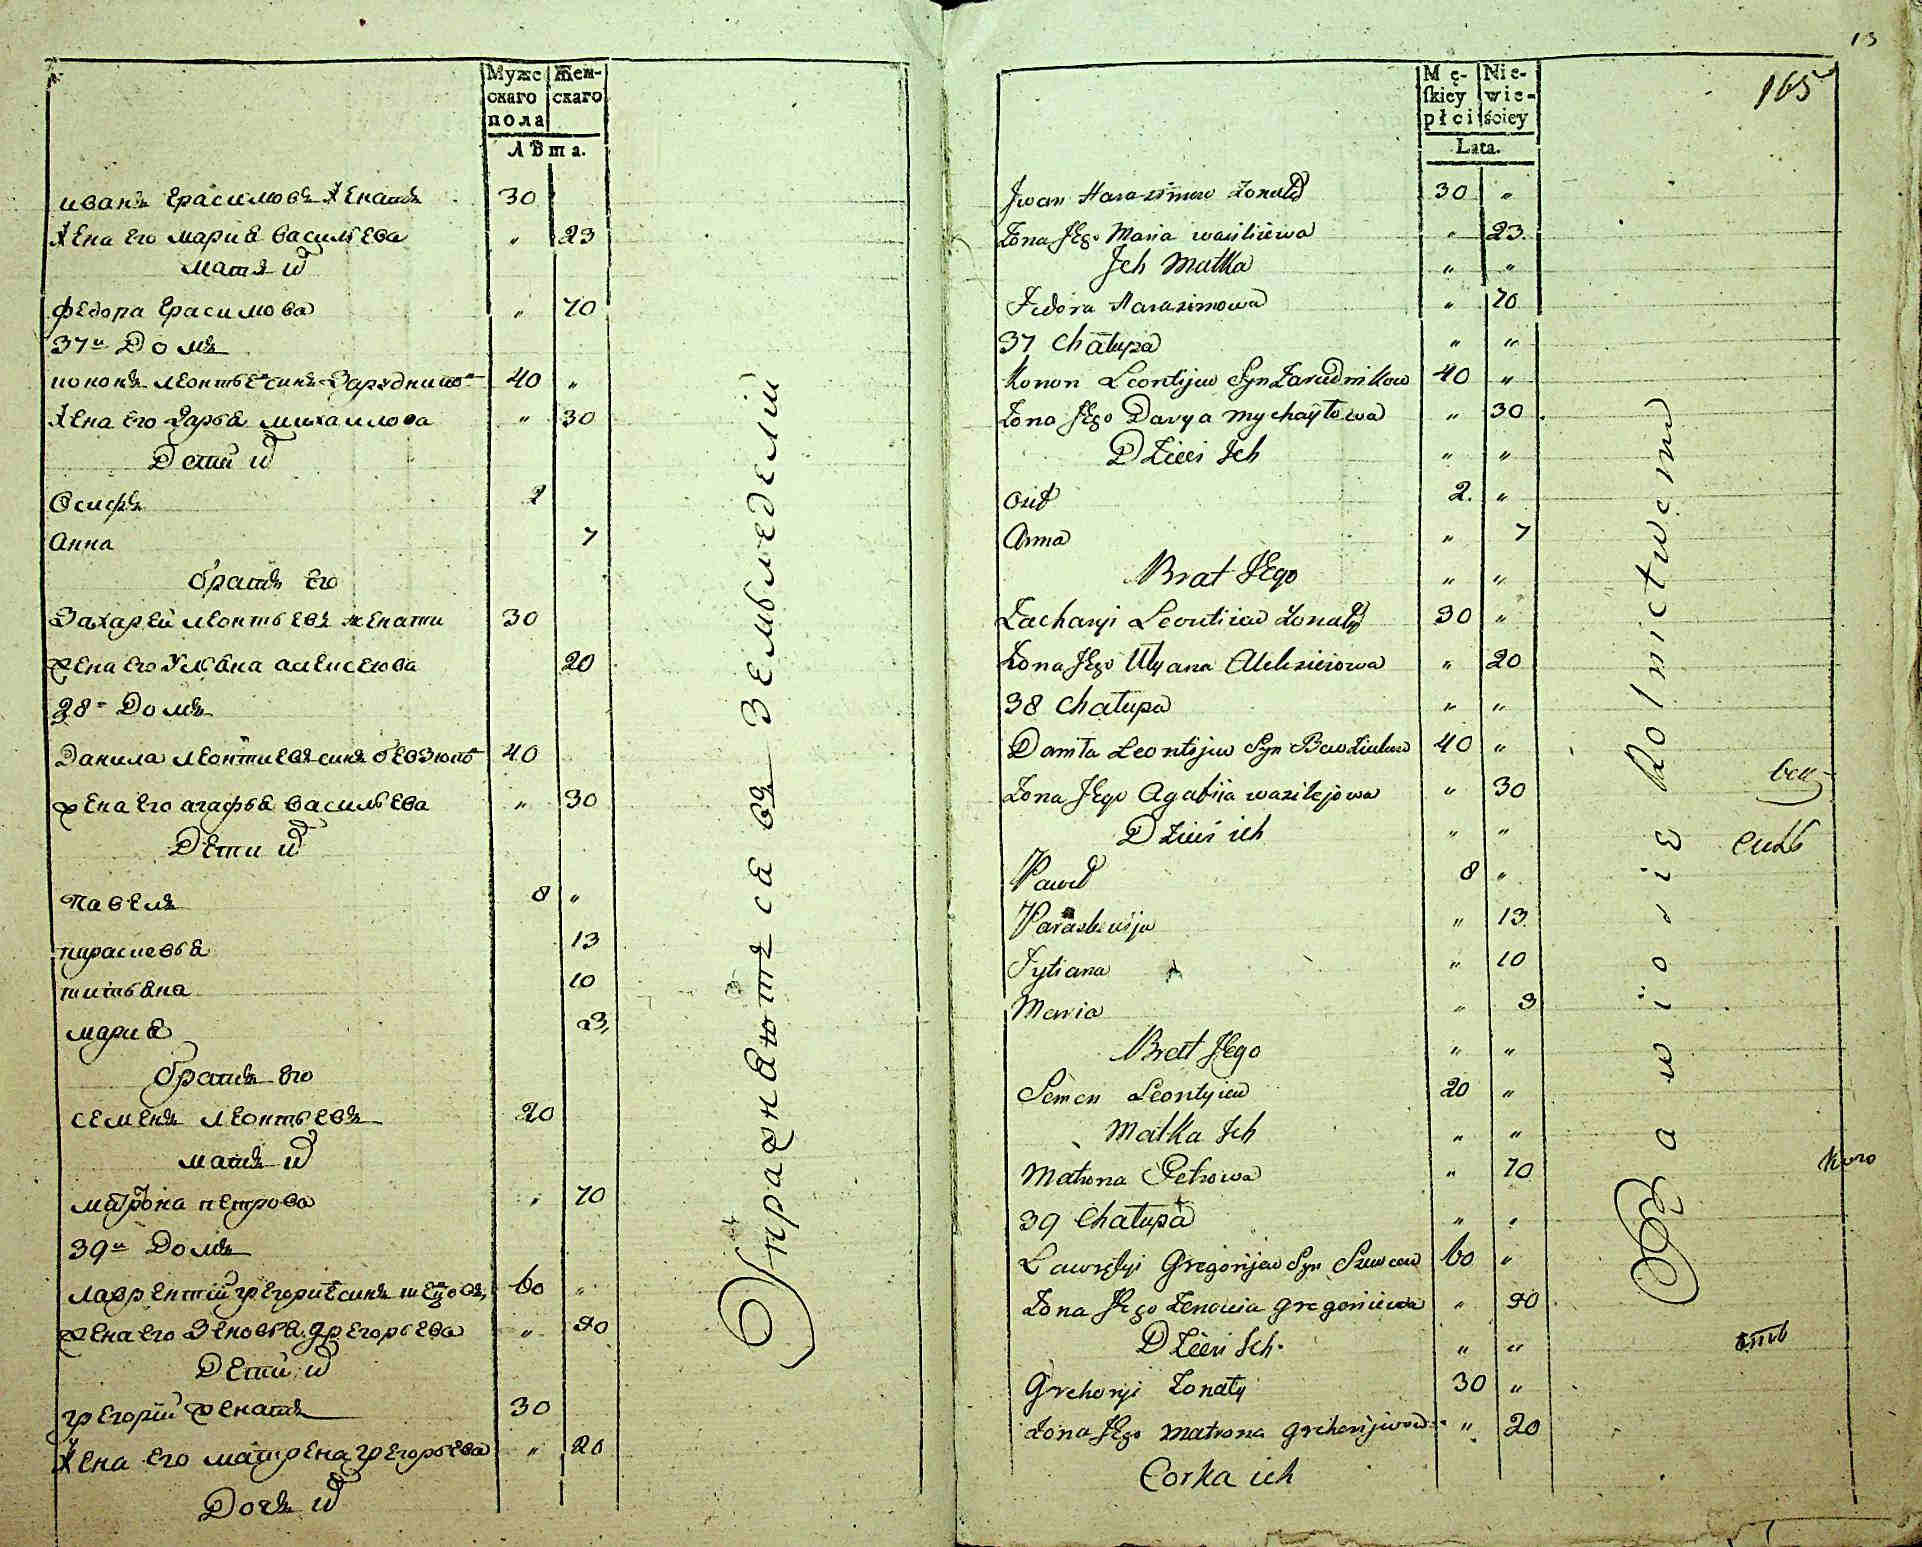 Муже
скаго
пола
Жен-
скаго
Лѣта.
иванъ Герасимовъ Женатъ 30
Жена его мариа васильева " 23
мать и
федора Герасимова " 70
37й Домъ
кононъ леонтьевъ синъ Зарудники 40 "
Жена его дарьа михаилова " 30
Дети и
Осифъ 2
Анна 7
братъ его
Захарей леонтьевъ женати 30
жена его Ульана алексеюва 20
38 Домъ
Данила леонтиевъ синъ бевзюко 40
жена его агафьа васильева " 30
Дети и
павелъ 8 "
параскевьа 13
титьана 10
мариа 3
братъ его
семенъ леонтьевъ 20
мать и
матрона петрова " 70
39й Домъ
лаврентий григориев синъ шевцовъ 60 "
жена его Зеновьа Григорьева "
Дети и
григорий женатъ 30
Жена его матрена григорьева " 20
Дочь и
Упражнаютса въ Земледелии
13
165
Mę-
skiey
płci
Nie-
wie-
ściey
Lata.
Iwan Harasimow Żonaty 30 "
Żona Jego Maria wasiliewa " 23
Ich Matka " "
Fedora Harasimowa " 70
37 Chałupa " "
Konon Leontijew Syn Zarudnikow 40 "
Żona Jego Darya mychayłowa " 30
Dzieci Ich " "
Osip 2 "
Anna " 7
Brat Jego " "
Zacharyi Leontiew Żonaty 30 "
Żona Jego Ulyana Alexieiowa " 20
38 Chałupa " "
Daniła Leontijew Syn Bewziukow 40 "
Żona Jego Agafiia wasilejowa " 30
Dzieci ich " "
Paweł 8 "
Paraskewija " 13
Tytiana " 10
Maria " 3
Brat Jego " "
Semen Leontyiew 20 "
Matka Ich " "
Matrona Petrowa " 70
39 Chałupa " "
Lawrętyi Gregorijew Syn Szewcow 60 "
Żona Jego Zenowia Gregoriewa "
Dzieci Ich " "
Grehoryi Żonaty 30 "
Żona Jego Matrona Grehorijowa " 20
Corka ich
Bawią się Rolnictwem